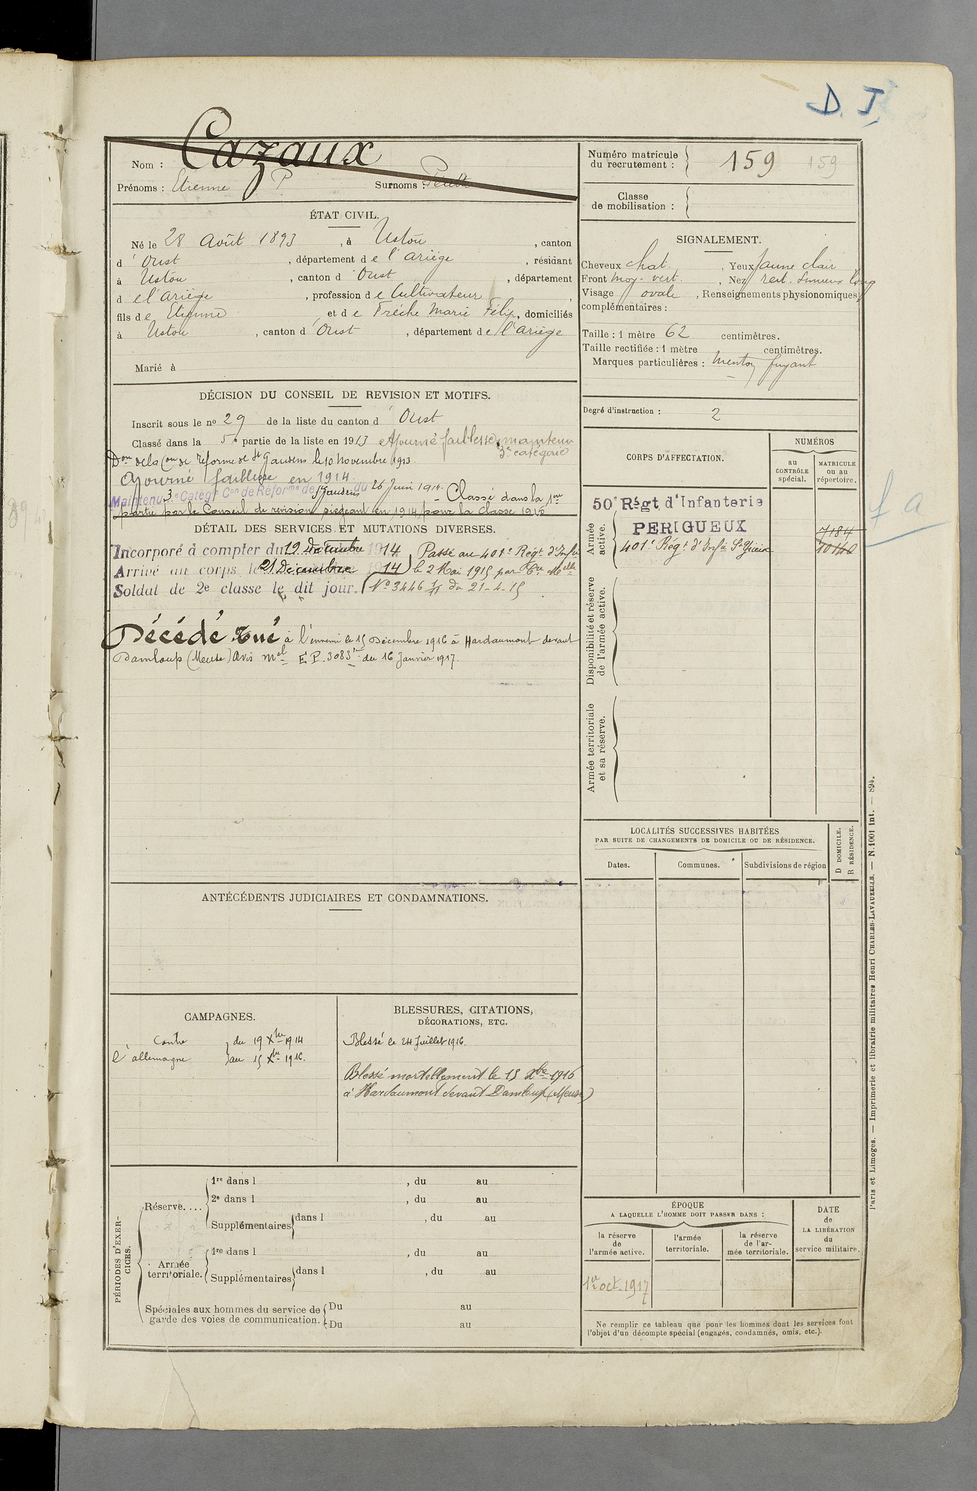 D. I
Nom : Cazaux
Prénoms : Etienne P. Surnoms :
Numéro matricule du recrutement : 159 159
Classe de mobilisation :
ÉTAT CIVIL.
Né le 28 Août 1893, à Ustou, canton
d'Oust, département de l'Ariège, résidant
à Ustou, canton d'Oust, département
de l'Ariège, profession de Cultivateur,
fils de Etienne et de Frèche Marie Félix, domiciliés
à Ustou, canton d'Oust, département de l'Ariège
Marié à
SIGNALEMENT.
Cheveux chat. , Yeux jaune clair
Front moy. vert. , Nez rect. long
Visage ovale , Renseignements physionomiques
complémentaires :
Taille : 1 mètre 62 centimètres.
Taille rectifiée : 1 mètre centimètres.
Marques particulières : menton fuyant
Degré d'instruction : 2
DÉCISION DU CONSEIL DE REVISION ET MOTIFS.
Inscrit sous le no 29 de la liste du canton d'Oust
Classé dans la 5e partie de la liste en 1913 Ajourné faiblesse, maintenu
3e catégorie
Don de la Con de Réforme de St Gaudens le 10 novembre 1913
Ajourné faiblesse en 1914
Maintenu 3e Catégie Con de Réforme de St Gaudens du 26 Juin 1914 - Classé dans la 1re
partie par le Conseil de revision siégeant en 1914 pour la classe 1915
DÉTAIL DES SERVICES ET MUTATIONS DIVERSES.
Incorporé à compter du 19 Décembre 1914 Passé au 401e Régt d'Infie
Arrivé au corps le 21 Décembre 1914 le 2 Mai 1915 par
Soldat de 2e classe le dit jour. No 3446 du 21-4-15
Décédé Tué à l'ennemi le 15 Décembre 1916 à Hardaumont devant
Damloup (Meuse) Avis mel E.P. 3083 du 16 Janvier 1917.
CORPS D'AFFECTATION.
NUMÉROS
au CONTRÔLE spécial.
MATRICULE ou au répertoire.
Armée active.
50e Régt d'Infanterie
PERIGUEUX 7184
401e Régt d'Infie St Yrieix 10140
f a
Disponibilité et réserve de l'armée active.
Armée territoriale et sa réserve.
LOCALITÉS SUCCESSIVES HABITÉES
PAR SUITE DE CHANGEMENTS DE DOMICILE OU DE RÉSIDENCE.
Dates. Communes. Subdivisions de région
D DOMICILE. R RÉSIDENCE.
ANTÉCÉDENTS JUDICIAIRES ET CONDAMNATIONS.
CAMPAGNES.
Contre du 19 Xbre 1914
l'allemagne au 15 Xbre 1916.
BLESSURES, CITATIONS,
DÉCORATIONS, ETC.
Blessé le 24 Juillet 1916.
Blessé mortellement le 15 Xbre 1916
à Hardaumont devant Damloup (Meuse)
PÉRIODES D'EXERCICES.
Réserve....
1re dans l , du au
2e dans l , du au
Supplémentaires dans l , du au
Armée territoriale.
1re dans l , du au
Supplémentaires dans l , du au
Spéciales aux hommes du service de garde des voies de communication. Du au
Du au
ÉPOQUE
A LAQUELLE L'HOMME DOIT PASSER DANS :
la réserve de l'armée active.
l'armée territoriale.
la réserve de l'armée territoriale.
DATE de LA LIBÉRATION du service militaire.
1er oct. 1917
Ne remplir ce tableau que pour les hommes dont les services font
l'objet d'un décompte spécial (engagés, condamnés, omis, etc.).
Paris et Limoges. — Imprimerie et librairie militaires Henri CHARLES-LAVAUZELLE. — N. 1001 Int. — 894.